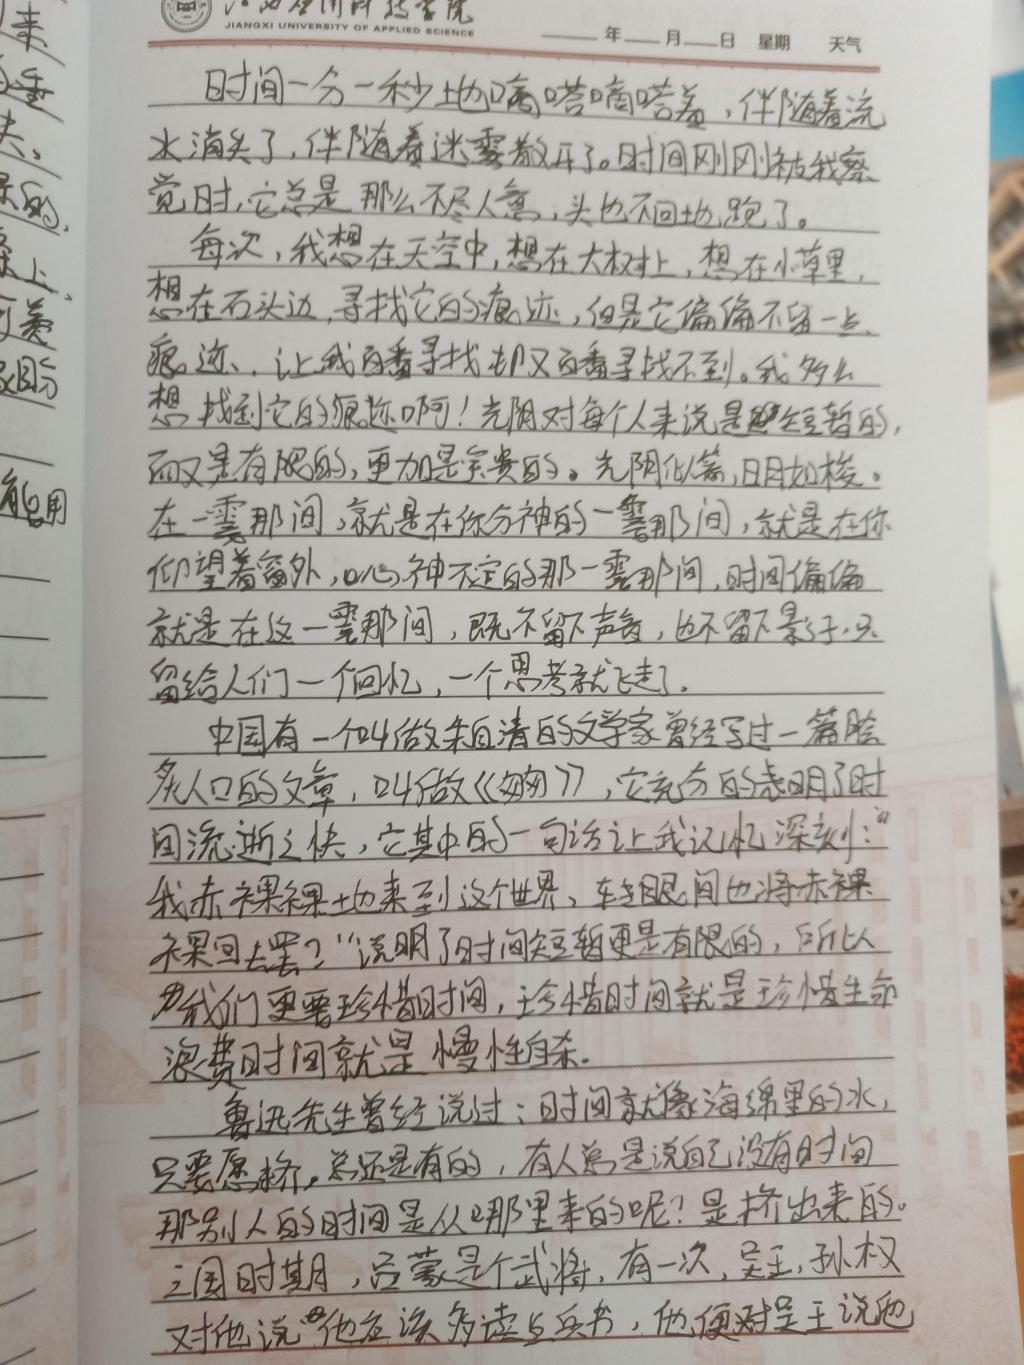 来
夫。
的,
上,
用
江西应用科技学院
JIANGXI UNIVERSITY OF APPLIED SCIENCE
年 月 日 星期 天气
时间一分一秒地嘀嗒嘀嗒着，伴随着流
水消失了，伴随着迷雾散开了。时间刚刚被我察
觉时，它总是那么不尽人意，头也不回地跑了。
每次，我想在天空中，想在大树上，想在小草里，
想在石头边，寻找它的痕迹，但是它偏偏不留一点
痕迹、让我百番寻找却又百番寻找不到。我多么
想找到它的痕迹啊！光阴对每个人来说是短暂的，
而又是有限的，更加是宝贵的。光阴似箭，日月如梭。
在一霎那间，就是在你分神的一霎那间，就是在你
仰望着窗外，心神不定的那一霎那间，时间偏偏
就是在这一霎那间，既不留下声音，也不留下影子，只
留给人们一个回忆，一个思考就飞走了。
中国有一个叫做朱自清的文学家曾经写过一篇脍
炙人口的文章，叫做《匆匆》，它充分的表明了时
间流逝之快，它其中的一句话让我记忆深刻：“
我赤裸裸地来到这个世界，转眼间也将赤裸
裸回去罢？”说明了时间短暂更是有限的，所以
我们更要珍惜时间，珍惜时间就是珍惜生命
浪费时间就是慢性自杀.
鲁迅先生曾经说过：时间就像海绵里的水，
只要愿挤，总还是有的，有人总是说自己没有时间
那别人的时间是从哪里来的呢？是挤出来的。
三国时期，吕蒙是个武将，有一次，吴王，孙权
对他说他应该多读点兵书，他便对吴王说他